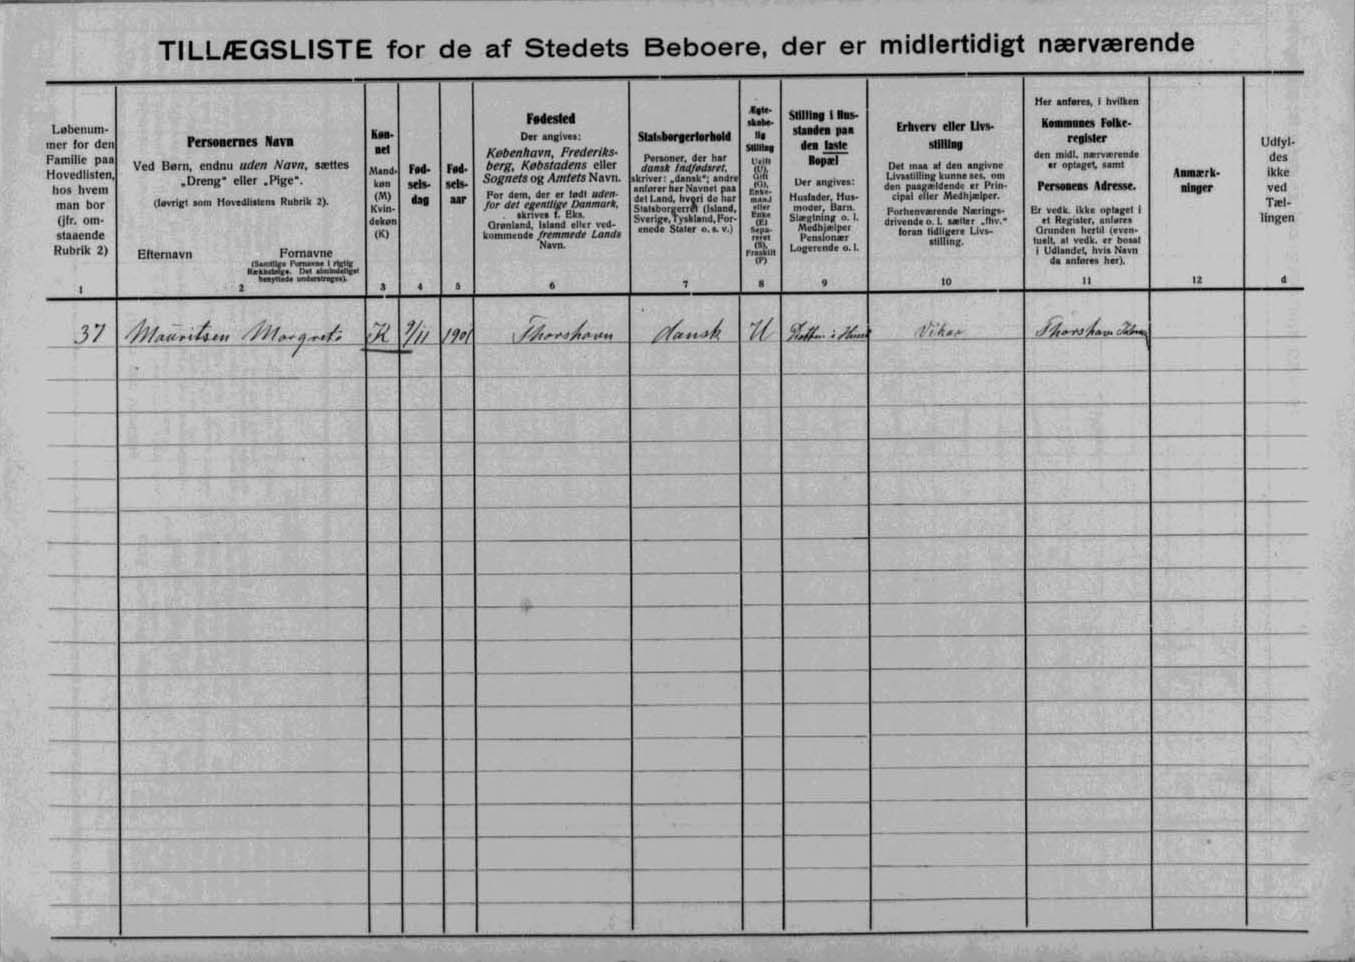 TILLÆGSLISTE for de af Stedets Beboere, der er midlertidigt nærværende
Løbenum-
mer for den
Familie paa
Hovedlisten,
hos hvem
man bor
(jfr. om-
staaende
Rubrik 2)
1
Personernes Navn
Ved Børn, endnu uden Navn, sættes
„Dreng" eller „Pige".
(Iøvrigt som Hovedlistens Rubrik 2).
Efternavn
Fornavne
(Samtlige Fornavne i rigtig
Rækkefølge. Det almindeligst
benyttede understreges).
2
Køn-
net
Mand-
køn
(M)
Kvin-
dekøn
(K)
3
Fød-
sels-
dag
4
Fød-
sels-
aar
5
Fødested
Der angives:
København, Frederiks-
berg, Købstadens eller
Sognets og Amtets Navn.
For dem, der er født uden-
for det egentlige Danmark,
skrives f. Eks.
Grønland, Island eller ved-
kommende fremmede Lands
Navn.
6
Statsborgerforhold
Personer, der har
dansk Indfødsret,
skriver: „dansk"; andre
anfører her Navnet paa
det Land, hvori de har
Statsborgerret (Island,
Sverige, Tyskland, For-
enede Stater o. s. v.)
7
Ægte-
skabe-
lig
Stilling
Ugift
(U),
Gift
(G),
Enke-
mand
eller
Enke
(E)
Sepa-
reret
(S),
Fraskilt
(F)
8
Stilling i Hus-
standen paa
den faste
Bopæl
Der angives:
Husfader, Hus-
moder, Barn,
Slægtning o. l.
Medhjælper
Pensionær
Logerende o. l.
9
Erhverv eller Livs-
stilling
Det maa af den angivne
Livsstilling kunne ses, om
den paagældende er Prin-
cipal eller Medhjælper.
Forhenværende Nærings-
drivende o. l. sætter „fhv."
foran tidligere Livs-
stilling.
10
Her anføres, i hvilken
Kommunes Folke-
register
den midl. nærværende
er optaget, samt
Personens Adresse.
Er vedk. ikke optaget i
et Register, anføres
Grunden hertil (even-
tuelt, at vedk. er bosat
i Udlandet, hvis Navn
da anføres her).
11
Anmærk-
ninger
12
Udfyl-
des
ikke
ved
Tæl-
lingen
d
37 Mauritsen Margreta K 9/11 1901 Thorshavn dansk U i Vikar Thorshavn